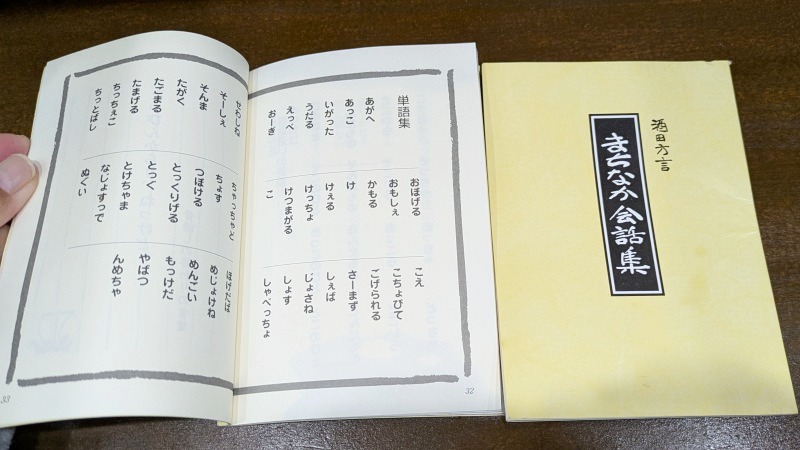 酒田方言
まちなか会話集
単語集
あがへ
あっこ
いがった
うだる
えっぺ
おーぎ
おぼげる
おもしぇ
かもる
け
けぇる
けっちょ
けつまがる
こ
こえ
こちょびて
ごげられる
さーまず
しぇば
じょさね
しょす
しゃべっちょ
32
せわしね
そーしぇ
そんま
たがく
たごまる
たまげる
ちっちぇこ
ちっとばし
ちゃっちゃど
ちょす
つぼける
とっくりげる
とっく
とけちゃま
なじょすっで
ぬぐい
ほげだば
めじょけね
めんごい
もっけだ
やばつ
んめちゃ
33